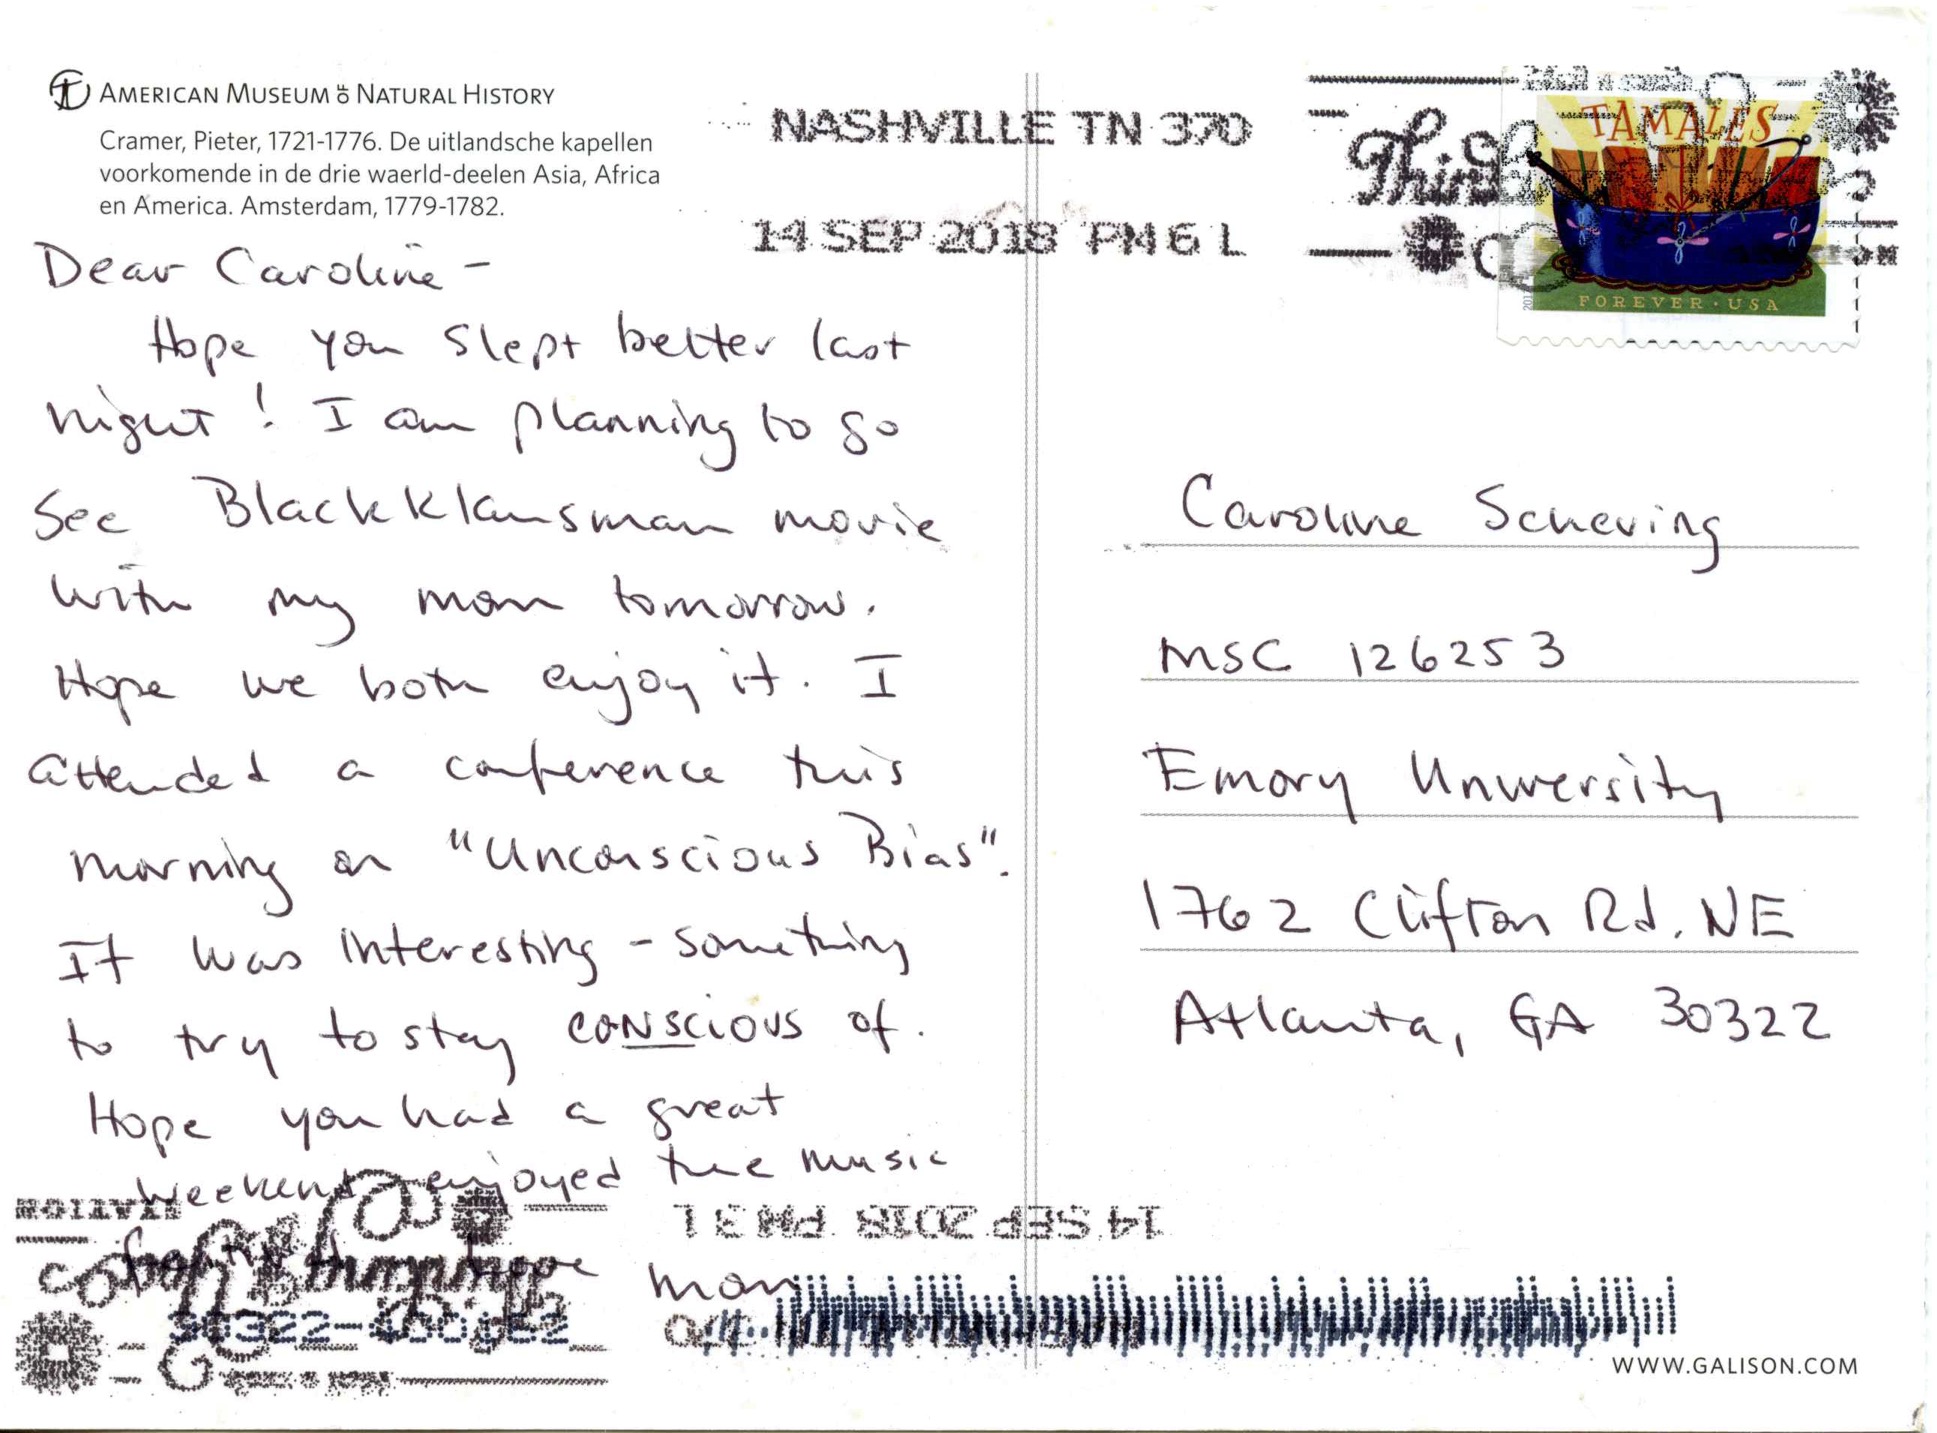 AMERICAN MUSEUM OF NATURAL HISTORY
Cramer, Pieter, 1721-1776. De uitlandsche kapellen
voorkomende in de drie waerld-deelen Asia, Africa
en America. Amsterdam, 1779-1782.
NASHVILLE TN 370
14 SEP 2018 PM 6 L
TAMALES
FOREVER · USA
Dear Caroline -
Hope you slept better last
night! I am planning to go
see Blackkklansman movie
with my mom tomorrow.
Hope we both enjoy it. I
attended a conference this
morning on "Unconscious Bias".
It was interesting - something
to try to stay coNScious of.
Hope you had a great
weekend - enjoyed the music
Love
Mom
Caroline Scheving
MSC 126253
Emory University
1762 Clifton Rd. NE
Atlanta, GA 30322
14 SEP 2018 PM 3 L
WWW.GALISON.COM